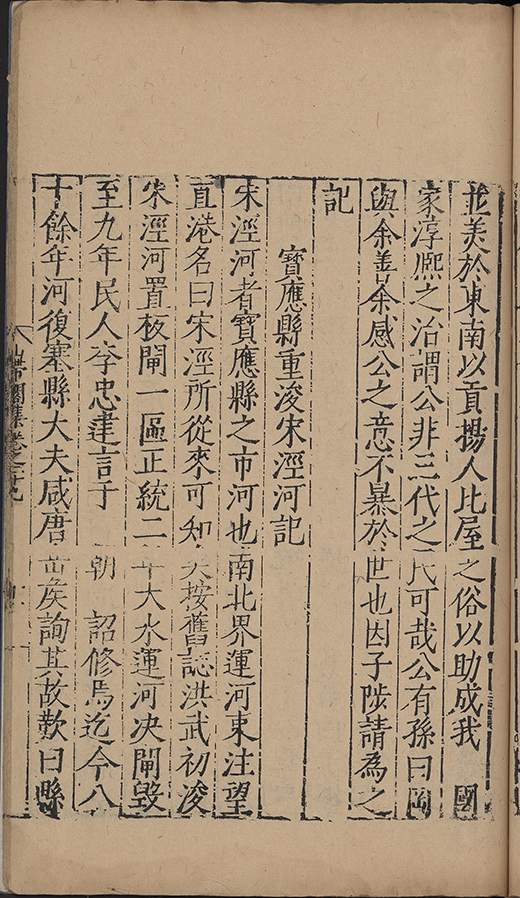 並美於東南以貢揚人比屋之俗以助成我　國
家淳熈之治謂公非三代之民可哉公有孫曰陶
與余善余感公之意不暴於世也因子陟請為之
記
寶應縣重浚宋涇河記
宋涇河者寶應縣之市河也南北界運河東注望
直港名曰宋涇所從來可知矣按舊誌洪武初浚
宋涇河置板閘一區正統二年大水運河决閘毀
至九年民人李忠建言于　朝　詔修焉迄今八
十餘年河復塞縣大夫咸唐苗矦詢其故歎曰縣
山帶閣集卷之十九